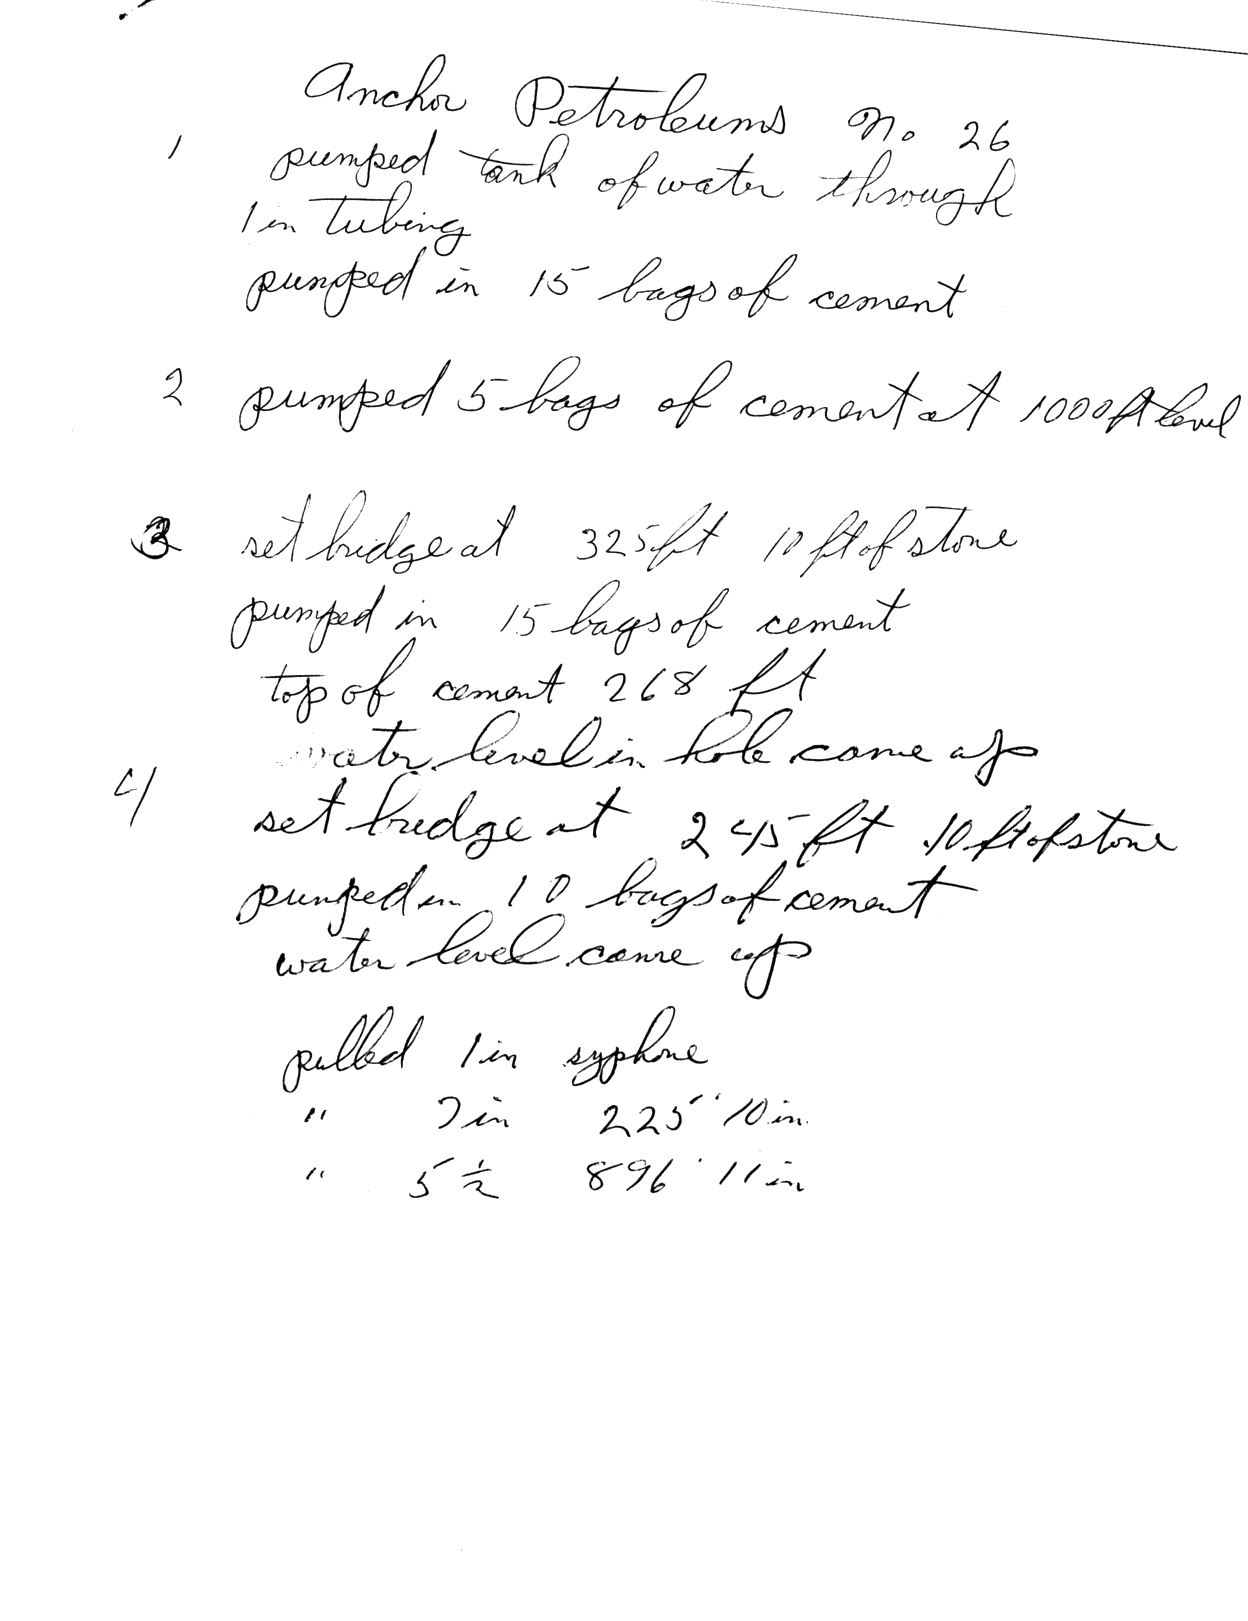 Anchor Petroleums No 26
1 pumped tank of water through
1 in tubing
pumped in 15 bags of cement
2 pumped 5 bags of cement at 1000 ft level
3 set bridge at 325 ft 10 ft of stone
pumped in 15 bags of cement
top of cement 268 ft
water level in hole came up
4 set bridge at 245 ft 10 ft of stone
pumped in 10 bags of cement
water level came up
pulled 1 in syphone
" 7 in 225' 10 in
" 5 1/2 896' 11 in